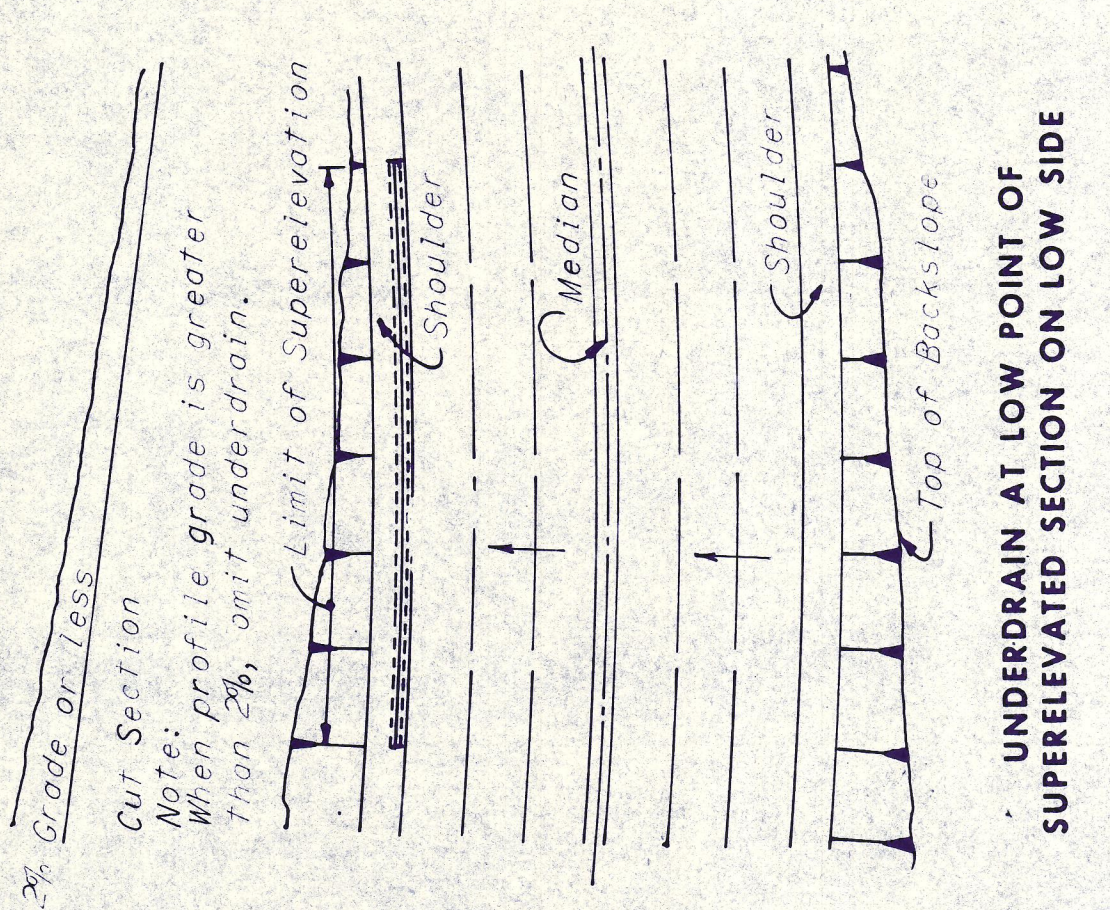 2% Grade or less
Cut Section
Note:
When profile grade is greater
than 2%, omit underdrain.
Limit of Superelevation
Shoulder
Median
Shoulder
Top of Backslope
UNDERDRAIN AT LOW POINT OF
SUPERELEVATED SECTION ON LOW SIDE